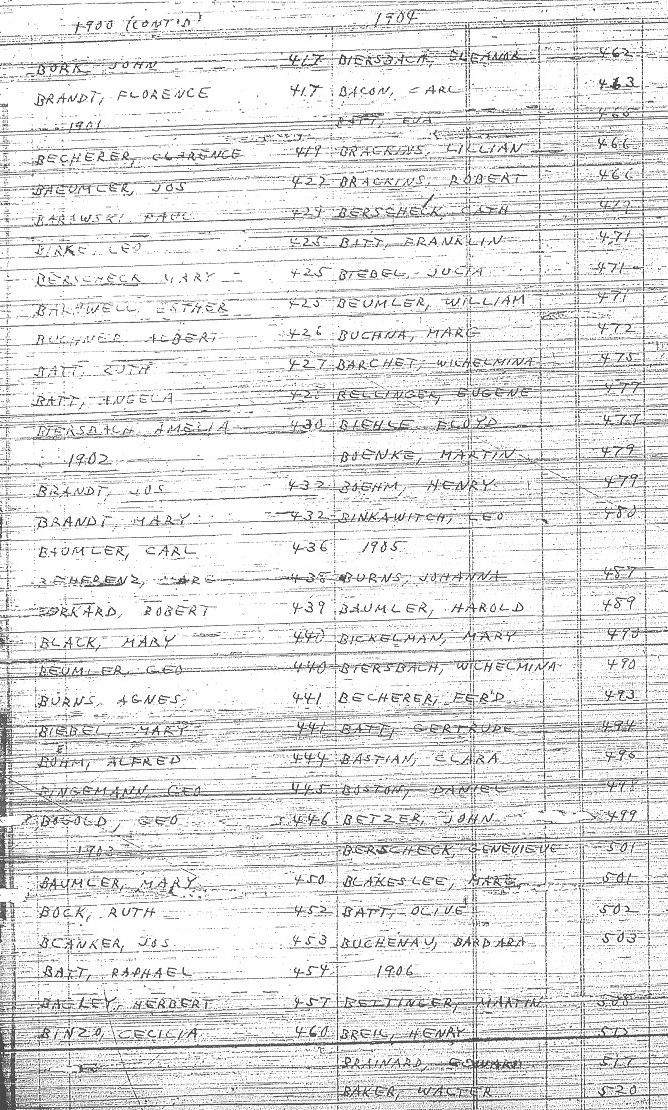 1900 (CONT'D)
BORK, JOHN 417
BRANDT, FLORENCE 417
1901
BECHERER, CLARENCE 419
BAEUMLER, JOS 422
BARAWSKI PAUL 424
BIRKE, LEO 425
BERSCHECK MARY 425
BAKEWELL ESTHER 425
BUCHNER ALBERT 426
BATT, RUTH 427
BATT, ANGELA
BIERSBACH AMELIA 430
1902
BRANDT, JOS 432
BRANDT, MARY 432
BAUMLER, CARL 436
438
ROBERT 439
BLACK, MARY 440
BEUMLER, GEO 440
BURNS, AGNES 441
BIEBEL, MARY 441
BOEHM, ALFRED 444
BINGEMANN, GEO 445
BOGOLD, GEO 446
1903
BAUMLER, MARY 450
BOCK, RUTH 452
BLANKER, JOS 453
BATT, RAPHAEL 454
BAGLEY, HERBERT 457
BINZO, CECILIA 460
1904
BIERSBACH, ELEANOR 462
BACON, EARL 463
BATT, EVA
BRACKINS, LILLIAN 466
BRACKINS, ROBERT 466
BERSCHECK, CATH
BATT, FRANKLIN 471
BIEBEL, JULIA 471
BEUMLER, WILLIAM 471
BUCHNA, MARG 472
BARCHET, WILHELMINA 475
BELLINGER, EUGENE 477
BIEHLE, FLOYD 477
BOENKE, MARTIN 479
BOEHM, HENRY 479
BINKAWITCH, LEO 480
1905
BURNS, JOHANNA 487
BAUMLER, HAROLD 489
BICKELMAN, MARY 490
BIERSBACH, WILHELMINA 490
BECHERER, FER'D 493
BATT, GERTRUDE 494
BASTIAN, CLARA 496
BOSTON, DANIEL 498
BETZER, JOHN 499
BERSCHECK, GENEVIEVE 501
BLAKESLEE, MARG 501
BATT, OLIVE 502
BUCHENAU, BARBARA 503
1906
BETTINGER, MARTIN 508
BREIL, HENRY
BRAINARD, EDWARD 517
BAKER, WALTER 520